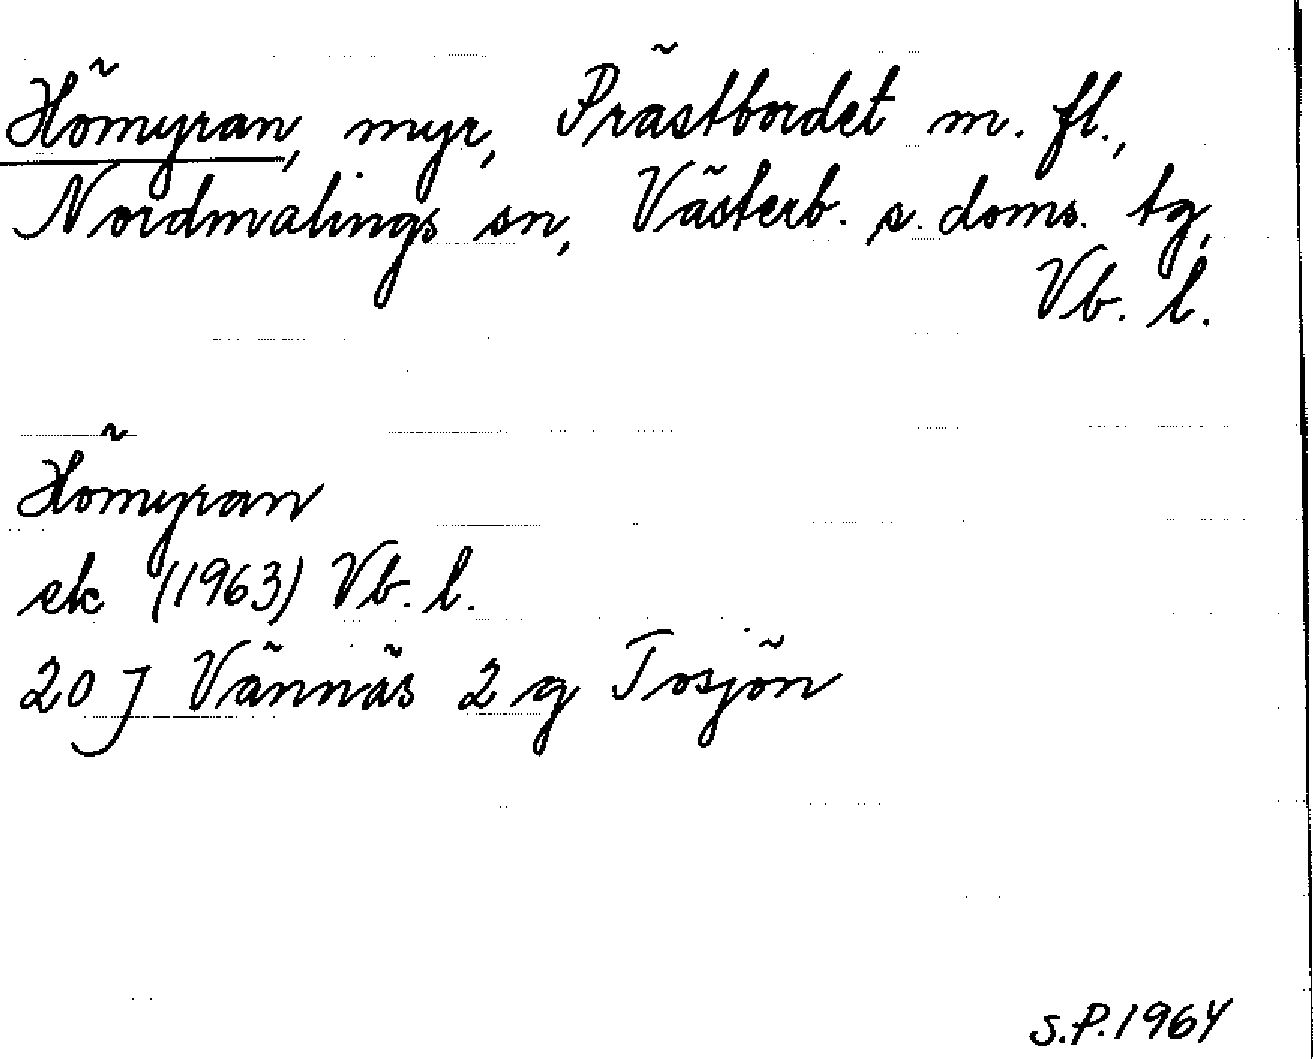 Hömyran, myr, Prästbordet m. fl.,
Nordmalings sn, Västerb. s. doms. tg,
Vb. l.
Hömyran
ek (1963) Vb. l.
20 J Vännäs 2 g Tosjön
S.P. 1964